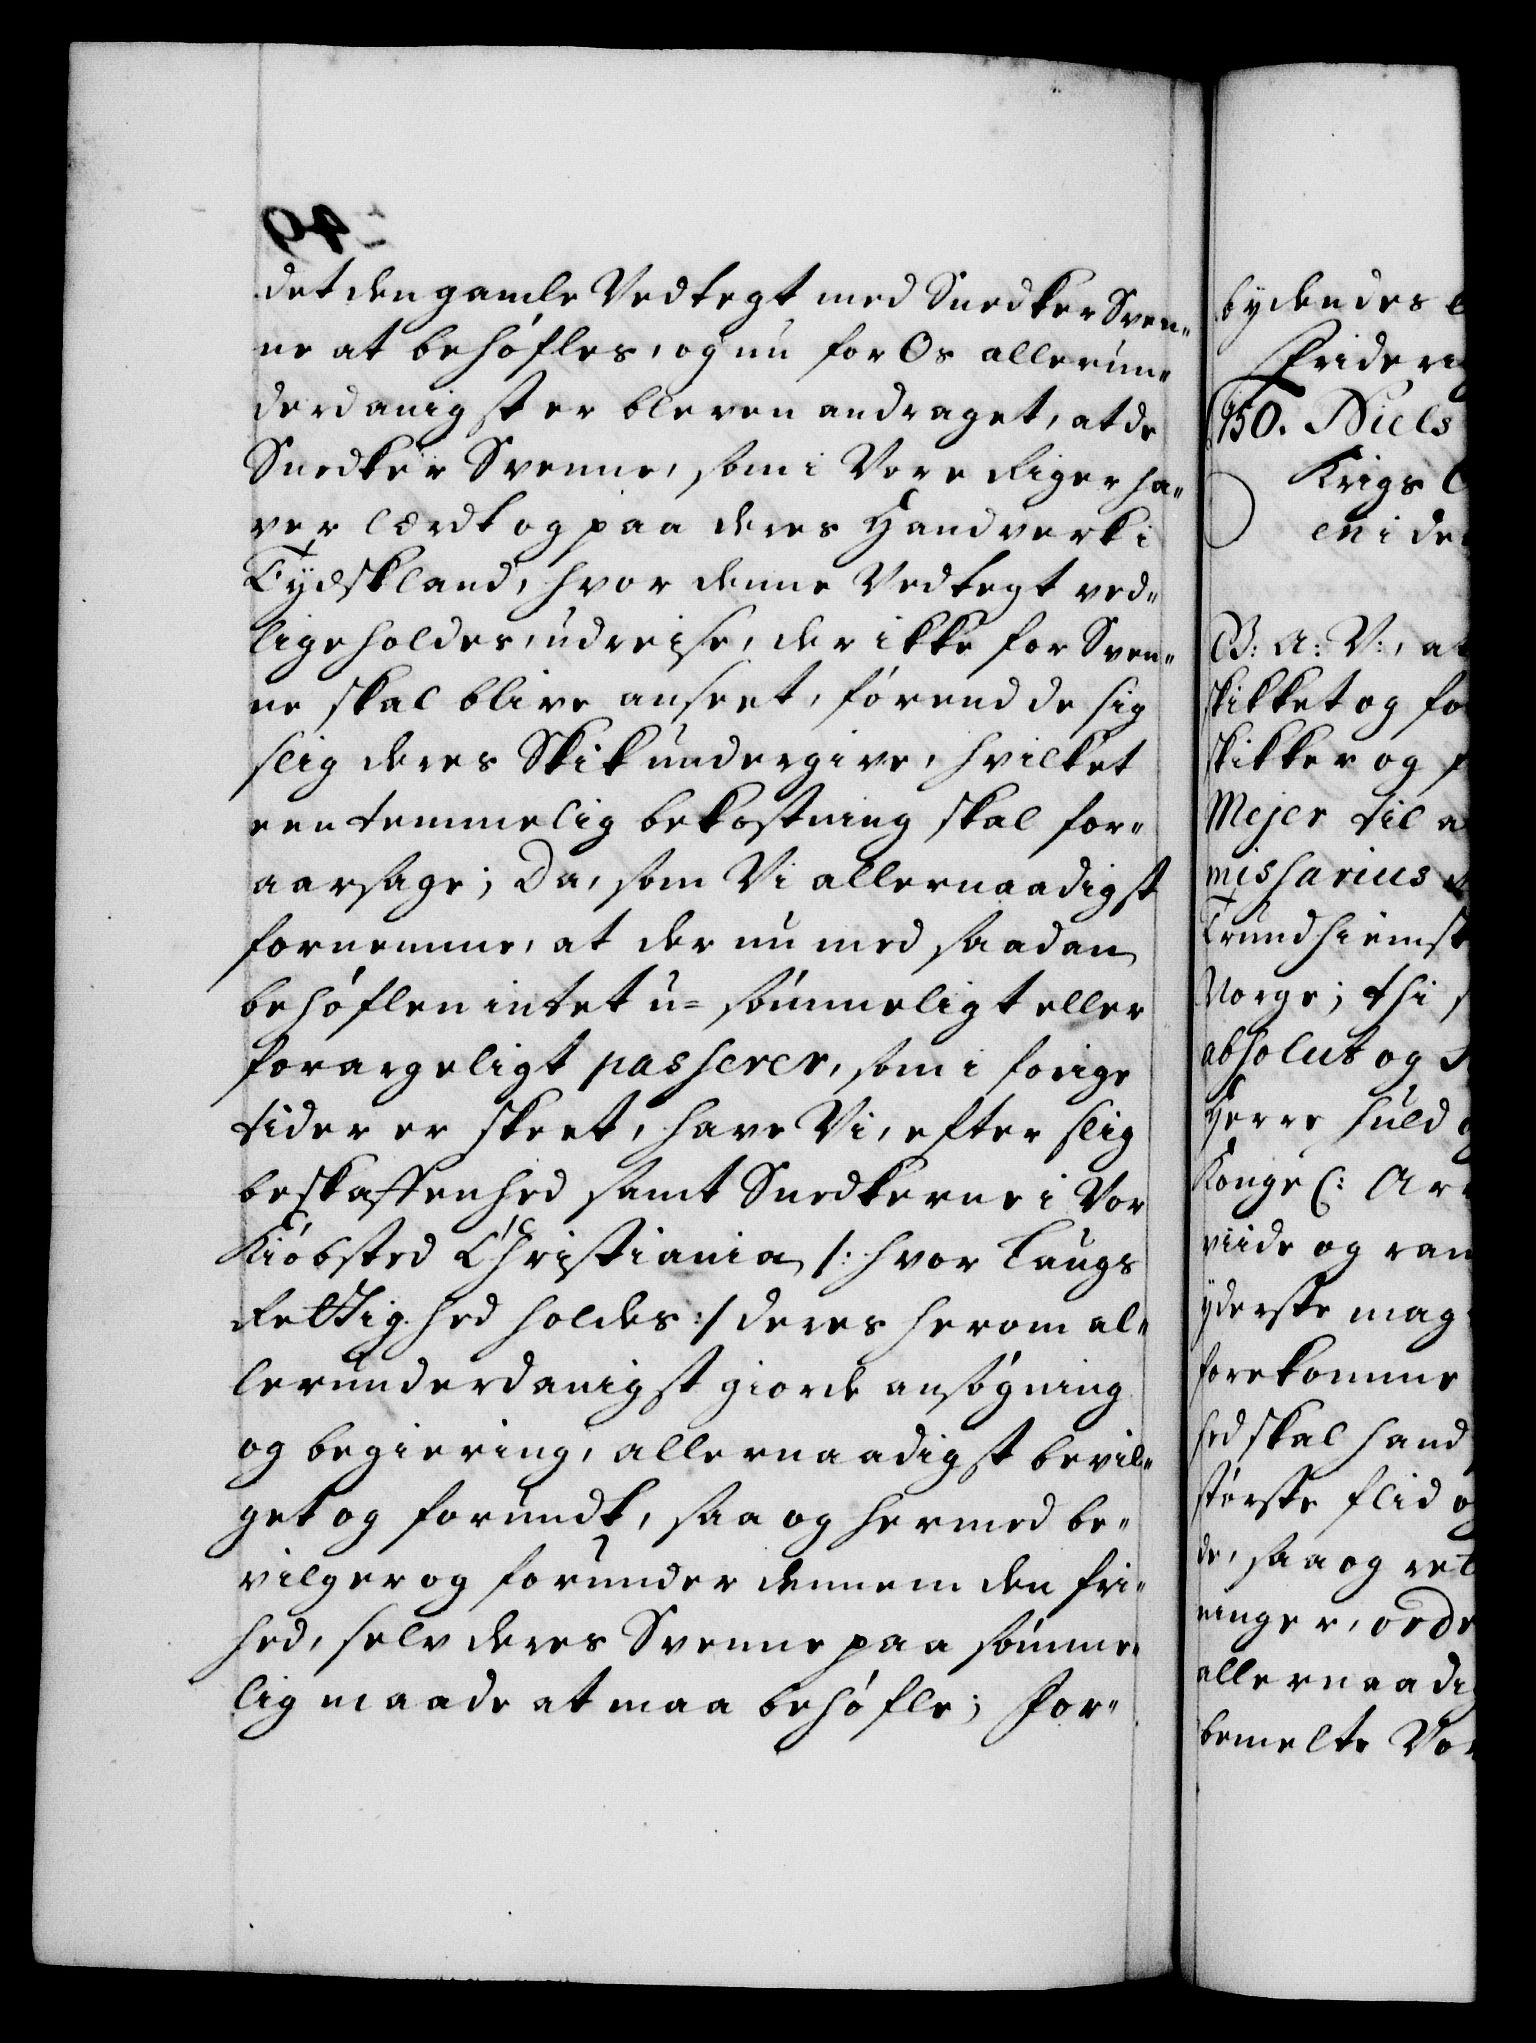 det den gamle Vedtegt med Snedker Sven„
ne at behøfles, og nu for Os allerun„
derdanigst er bleven andraget, at de
Snedker Svenne, som i Vore Riger ha„
ver lærdt og paa deres Handverk i
Tydskland, hvor denne Vedtegt ved„
ligeholdes, udreise, der ikke for Sven„
ne skal blive anseet, førend de sig
slig deres Skik undergive, hvilket
een temmelig bekostning skal for„
aarsage; Da, som Vi allernaadigst
fornemme, at der nu med saadan
behøflen intet u= sømmeligt eller
forargeligt passerer, som i forige
tider er skeet, have Vi, efter slig
beskaffenhed samt Snedkerne i Vor
Kiøbsted Christiania /: hvor Laugs
Rettighed holdes :/ deres herom al„
lerunderdanigst giorde ansøgning
og begiering, allernaadigst bevil„
get og forundt, saa og hermed be„
vilger og forunder dennem den fri„
hed, selv deres Svenne paa sømme„
lig maade at maa behøfle; For„
bydendes
Frideri
150. Niels
Krigs
en i de
G: A: V:, at
skikket og fo
skikker og
Mejer til
missarius
Trundhiemsk
Norge; thi
absolut og
Herre huld
Konge (: Ar
viide og ram
yderste mag
forekomme
hed skal hand
største flid
de, saa og ret
ninger, ord
allernaadi
bemelte Vor